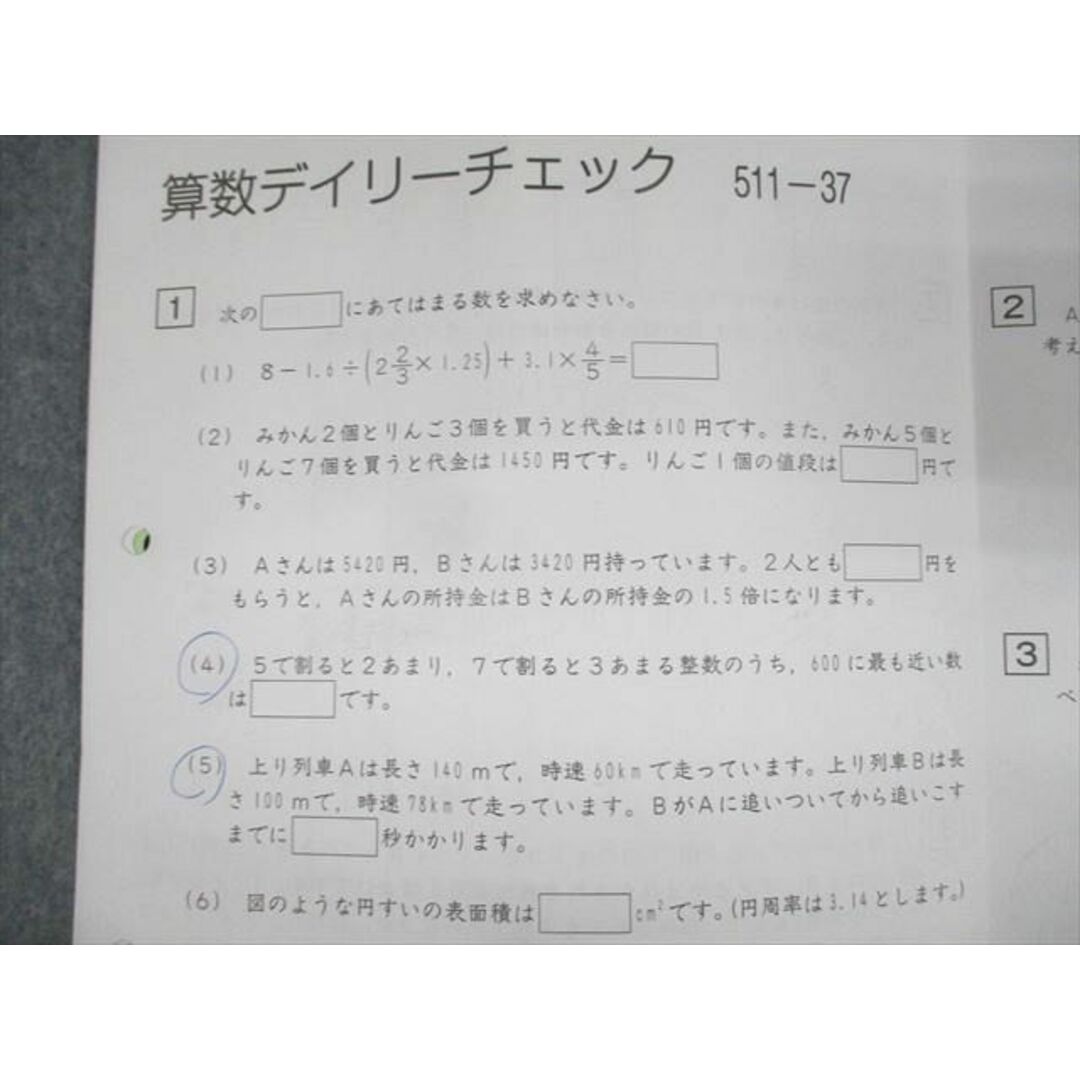 算数デイリーチェック 511－37
1 次の□にあてはまる数を求めなさい。
(1) 8－1.6÷(2 2/3×1.25)＋3.1×4/5＝□
(2) みかん2個とりんご3個を買うと代金は610円です。また，みかん5個と
りんご7個を買うと代金は1450円です。りんご1個の値段は□円で
す。
(3) Aさんは5420円，Bさんは3420円持っています。2人とも□円を
もらうと，Aさんの所持金はBさんの所持金の1.5倍になります。
(4) 5で割ると2あまり，7で割ると3あまる整数のうち，600に最も近い数
は□です。
(5) 上り列車Aは長さ140mで，時速60kmで走っています。上り列車Bは長
さ100mで，時速78kmで走っています。BがAに追いついてから追いこす
までに□秒かかります。
(6) 図のような円すいの表面積は□cm²です。(円周率は3.14とします。)
2 A
考え
3
べ